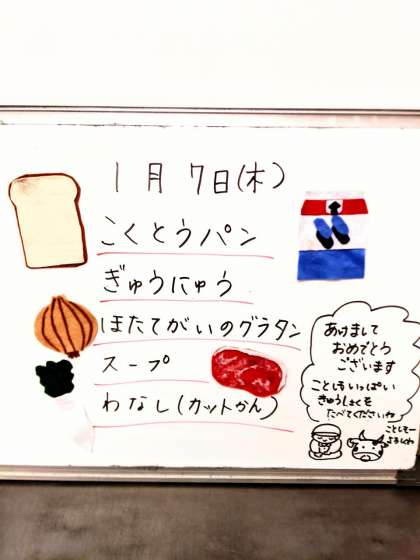 1月7日(木)
こくとうパン
ぎゅうにゅう
ほたてがいのグラタン
スープ
わなし(カットかん)
あけまして
おめでとう
ございます
ことしもいっぱい
きゅうしょくを
たべてくださいね
ことしも
よろしくね